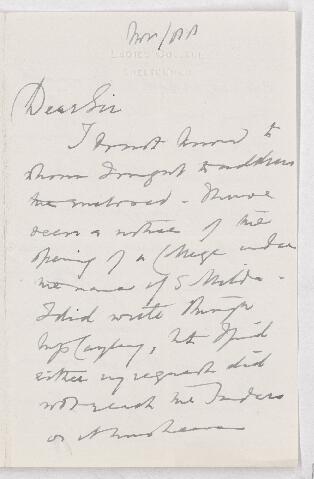 Nov/88
LADIES' COLLEGE
CHELTENHAM
Dear Sir
I do not know to
whom I ought to address
the enclosed. I have
seen a notice of the
opening of a College under
the name of S Hilda.
I did write through
Mrs Cayley, but I find
either my request did
not reach the Leaders
or it must have